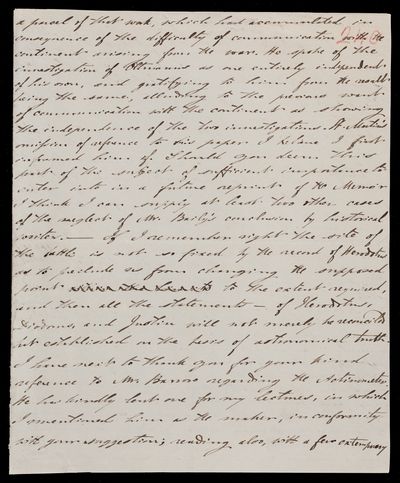 a parcel of that work, which had accumulated in
consequence of the difficulty of communication with the
continent arising from the war. He spoke of the
investigation of Oltmanns as one entirely independent
of his own, and gratifying to him from the result
being the same, alluding to the previous want
of communication with the continent as showing
the independence of the two investigations. St Martin's
of reference to his paper I believe I first
informed him of. Should you deem this
part of the subject of sufficient importance to
enter into in a future reprint of the Memoir
I think I can supply at least two other cases
of the neglect of Mr. Baily's conclusion by historical
writers. — If I remember right the site of
the battle is not so fixed by the record of Herodotus
as to preclude us from changing the supposed
point to the extent required,
and then all the statements — of Herodotus,
Diodorus, and Justin will not merely be reconciled
but established on the basis of astronomical truth.
I have next to thank you for your kind
reference to Mr. Barrow regarding the Actinometer.
He has kindly lent one for my lectures, in which
I mentioned him as the maker, in conformity
with your suggestion; reading also, with a few extemporary